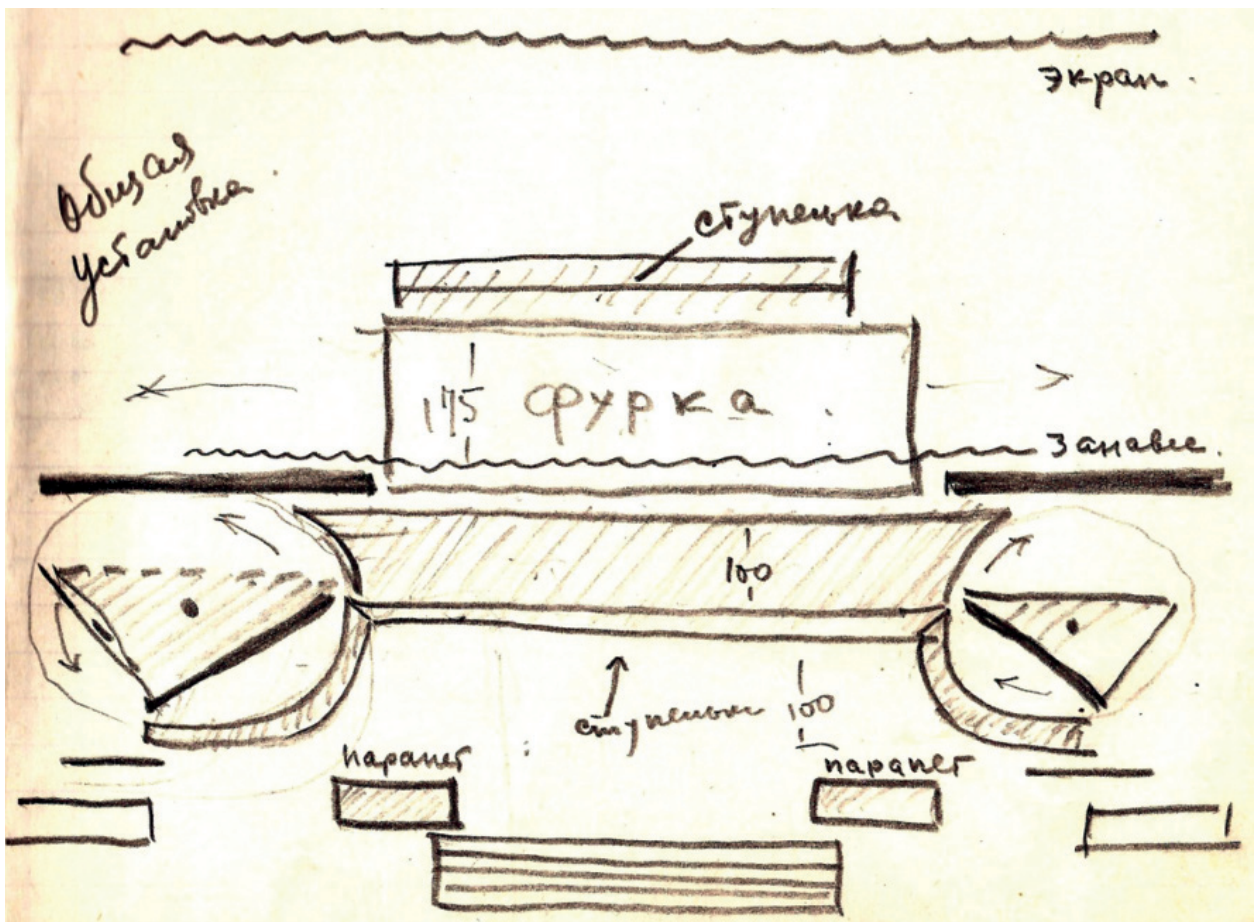 экран.
Общая
установка.
ступенька
175 фурка.
Занавес.
100
ступеньки 100
парапет
парапет